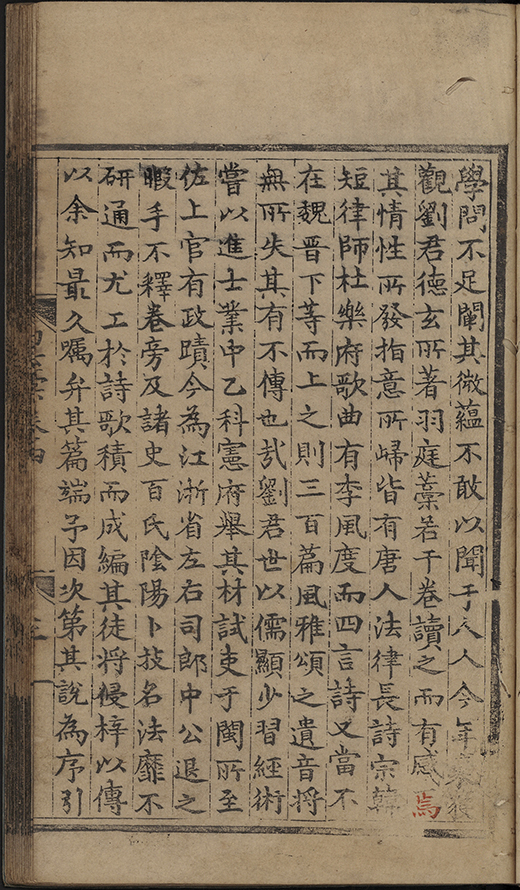 學問不足闡其微蘊不敢以聞于人人今年
觀劉君德玄所著羽庭藁若干卷讀之而有感焉
其情性所發指意所歸皆有唐人法律長詩宗韓
短律師杜樂府歌曲有李風度而四言詩又當不
在魏晉下等而上之則三百篇風雅頌之遺音將
無所失其有不傳也㢤劉君世以儒顯少習經術
嘗以進士業中乙科憲府舉其材試吏于閩所至
佐上官有政蹟今為江浙省左右司郎中公退之
暇手不釋卷旁及諸史百氏陰陽卜技名法靡不
研通而尤工於詩歌積而成編其徒將侵梓以傳
以余知最久囑弁其篇端予因次第其說為序引